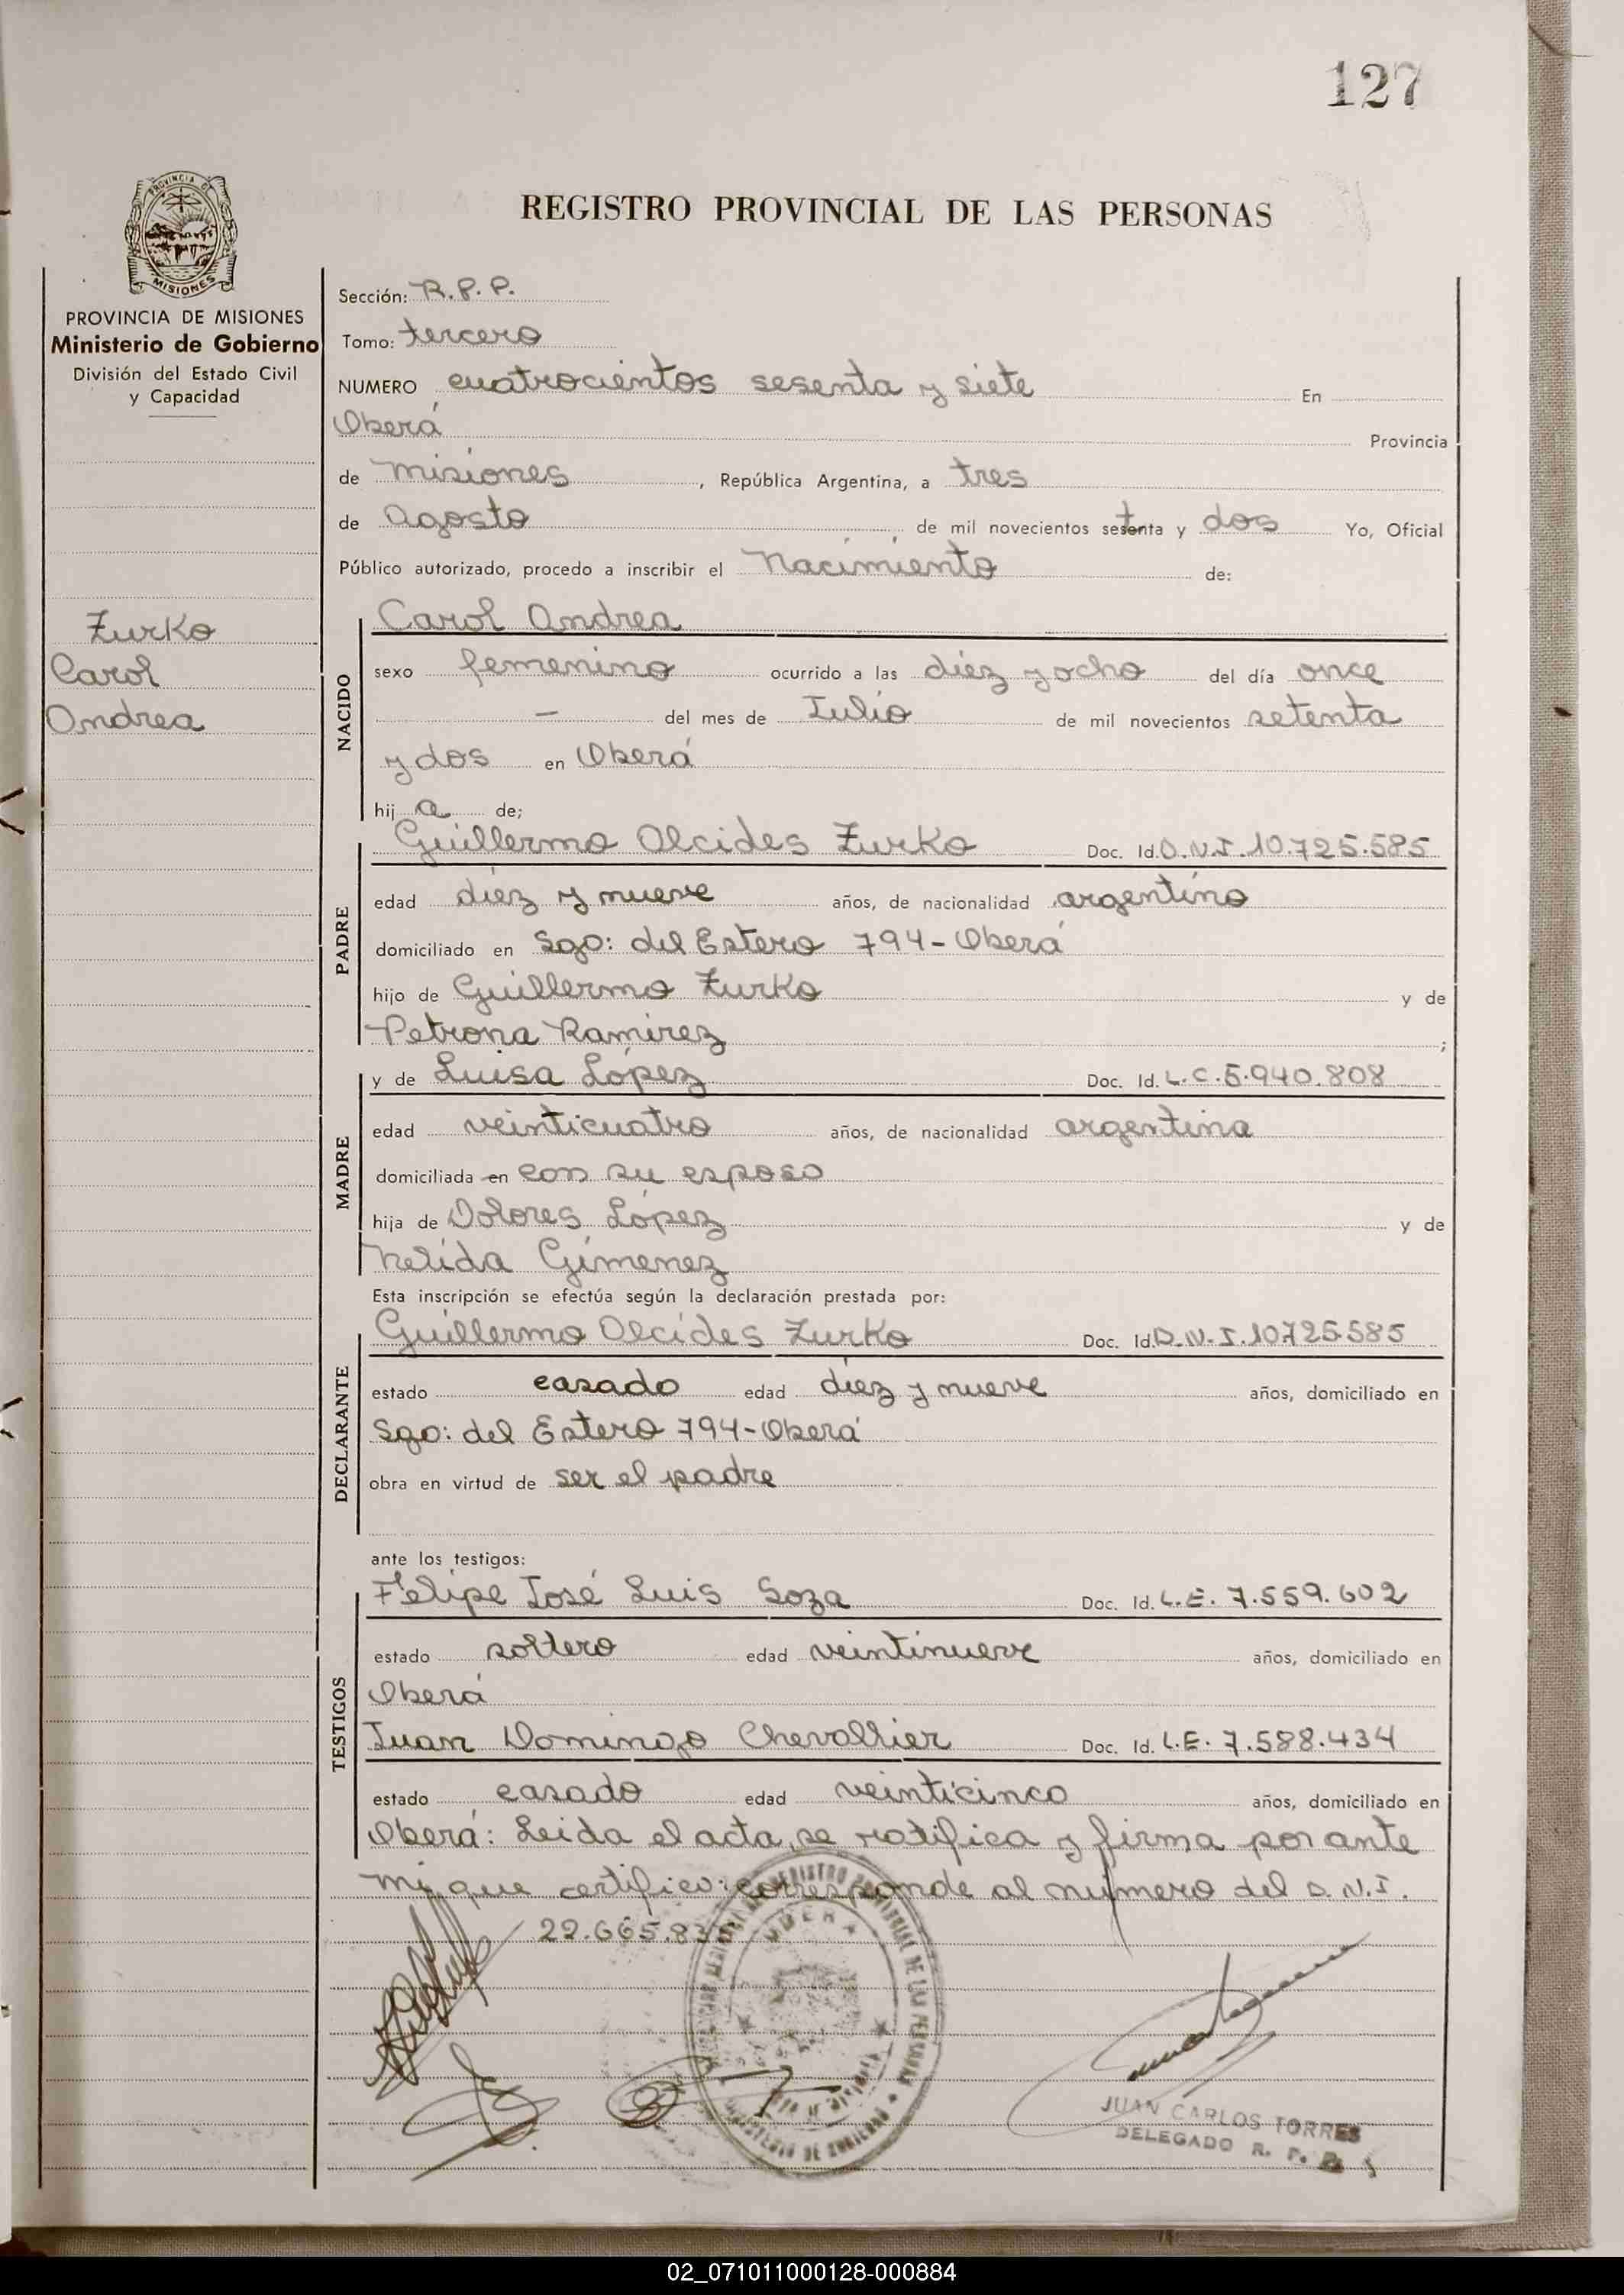 127
PROVINCIA DE
MISIONES
REGISTRO PROVINCIAL DE LAS PERSONAS
PROVINCIA DE MISIONES
Ministerio de Gobierno
División del Estado Civil
y Capacidad
Zurko
Carol
Andrea
Sección: R.P.P.
Tomo: tercero
NUMERO cuatrocientos sesenta y siete En
Oberá Provincia
de Misiones, República Argentina, a tres
de Agosto de mil novecientos setenta y dos Yo, Oficial
Público autorizado, procedo a inscribir el Nacimiento de:
NACIDO
Carol Andrea
sexo femenino ocurrido a las diez y ocho del día once
— del mes de Julio de mil novecientos setenta
y dos en Oberá
hij a de;
PADRE
Guillermo Alcides Zurko Doc. Id. D.N.I. 10.725.585
edad diez y nueve años, de nacionalidad argentino
domiciliado en Sgo: del Estero 794-Oberá
hijo de Guillermo Zurko y de
Petrona Ramírez ;
MADRE
y de Luisa López Doc. Id. L.C. 5.940.808
edad veinticuatro años, de nacionalidad argentina
domiciliada en con su esposo
hija de Dolores López y de
Nelida Gimenez
Esta inscripción se efectúa según la declaración prestada por:
DECLARANTE
Guillermo Alcides Zurko Doc. Id. D.N.I. 10725585
estado casado edad diez y nueve años, domiciliado en
Sgo: del Estero 794-Oberá
obra en virtud de ser el padre
ante los testigos:
TESTIGOS
Felipe José Luis Soza Doc. Id. L.E. 7.559.602
estado soltero edad veintinueve años, domiciliado en
Oberá
Juan Domingo Chevallier Doc. Id. L.E. 7.588.434
estado casado edad veinticinco años, domiciliado en
Oberá: Leida el acta, se ratifica y firma por ante
mi, que certifico: corresponde al número del D.N.I.
22.665.83
JUAN CARLOS TORRES
DELEGADO R. P. P.
02_071011000128-000884